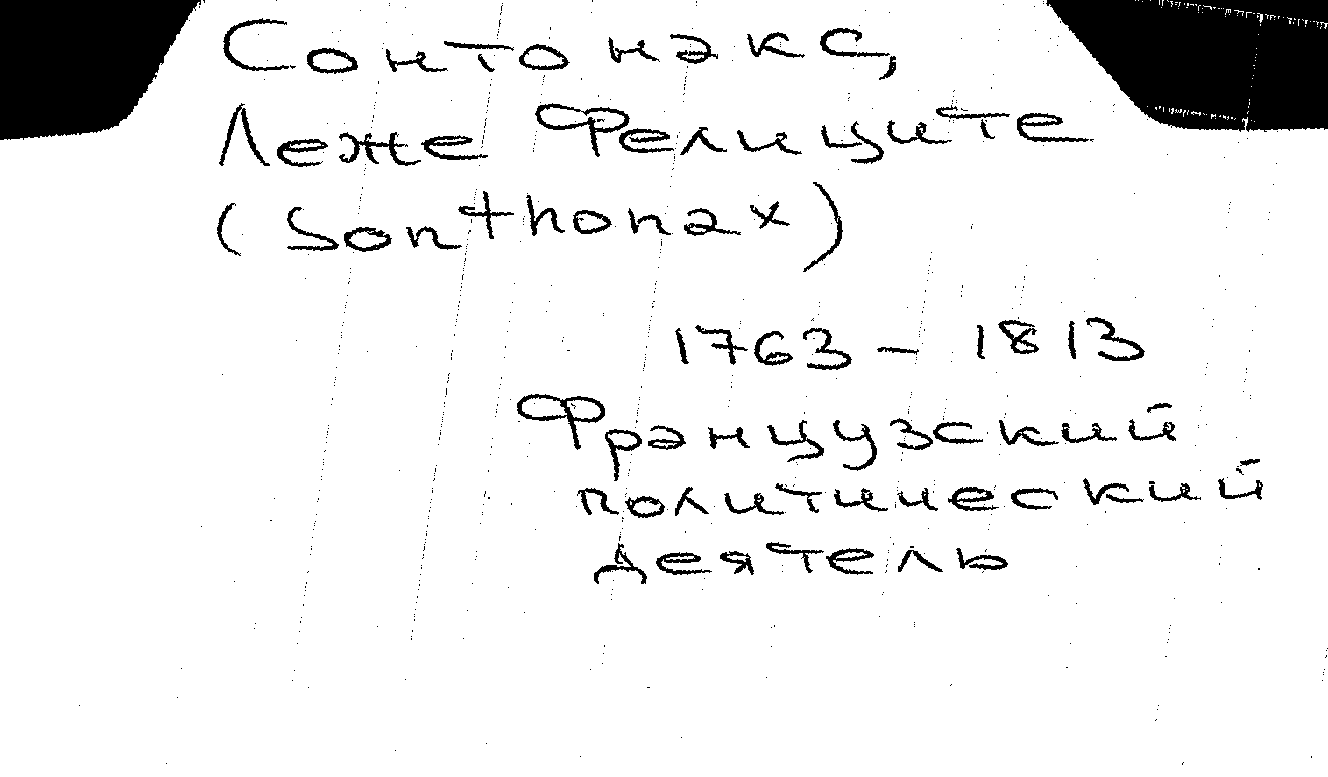 Сонтонакс,
Леже Фелиците
(Sonthonax)
1763 – 1813
Французский
политический
деятель